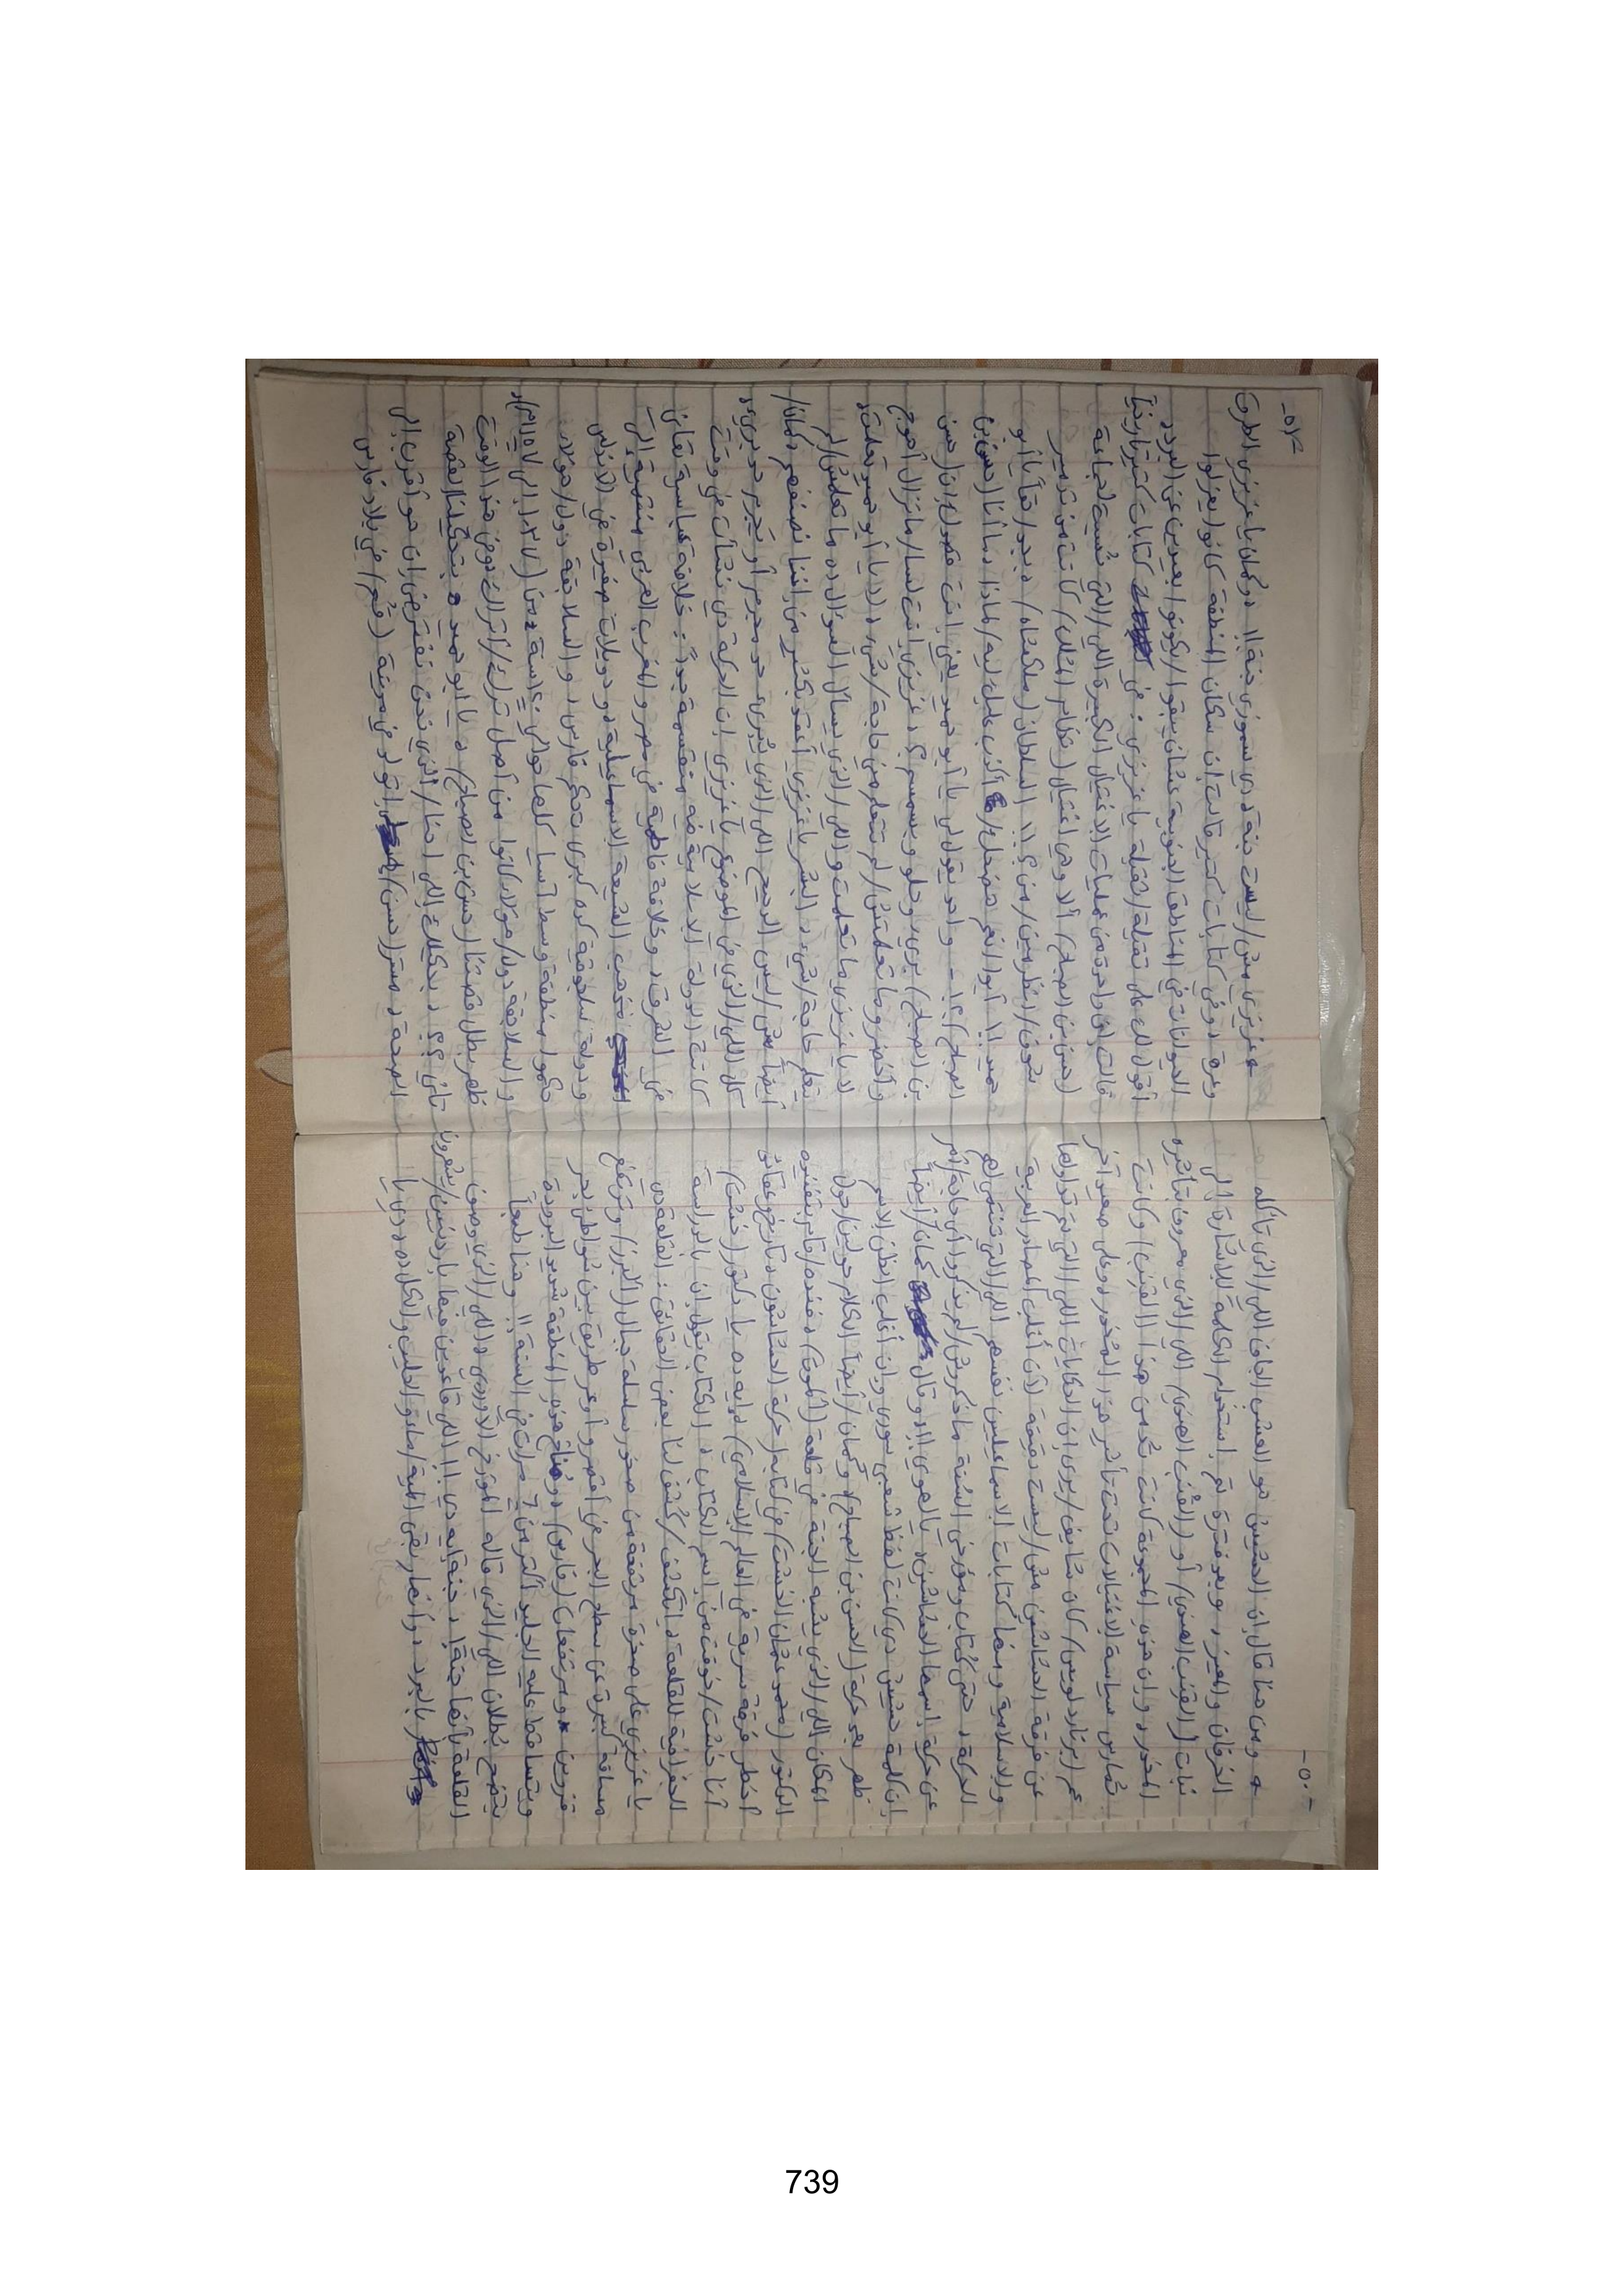 -٥٠-
ومن هنا قال إن الحشيش هو العشب الجاف اللي/الذي تأكله
الخرفان والمعيز، وبعد فترة تم إستخدام الكلمة للإشارة إلى
نبات (القنب الهندي) أو (القنب الهندي) اللي/الذي معروف بتأثيره
المخدر، وإن هذه المجموعة كانت تُدمن هذا (القنب) وكانت
تُمارس سياسة الإغتيالات تحت تأثير هذا المخدر، وعلى صعيد آخر
عم (برنارد لويس) كان شايف/يرى إن الحكايات اللي/التي تم تداولها
عن فرقة الحشاشين مش/ليست دقيقة لأن أغلب المصادر العربية
والإسلامية ومنها كتابات الإسماعيلين نفسهم اللي/التي تنتمي لهم
الحركة، حتى كُتاب ومؤرخي السُنة ماذكروش/لم يذكروا أي حاجة/أمر
عن حركة إسمها الحشاشين، يالهوي!! وقال كمان/أيضاً
إن كلمة حشيش دي كانت لفظ شعبي سوري وإن أغلب الظن الإسم
ظهر بعد حركة (الحسن بن الصباح)، وكمان/أيضاً الكلام حولين/حول
المكان اللي/الذي يشبه الجنة في قلعة (آلموت)، فنده/قام بتفنيده
الدكتور (محمد عثمان الخشت) في كتابه (حركة الحشاشون، تاريخ وعقائد
أخطر فرقة سرية في العالم الإسلامي)، إيه ده يا دكتور (خشت)
أنا خشت/خوفت من إسم الكتاب، الكتاب بيقول إن بالدراسة
الجغرافية للقلعة، إتكشف/كُشف لنا بعض الحقائق: القلعة دي
يا عزيزي على صخرة مرتفعة من صخور سلسلة جبال (ألبرز) وترتفع
مسافة كبيرة عن سطح البحر في أقصر وأوعر طريق بين شواطئ بحر
قزوين ومرتفعات (فارس)، ومُناخ هذه المنطقة شديد البرودة
ويتساقط عليه الجليد أكثر من ٦ مرات في السنة!! وهنا طبعاً
يتضح بُطلان اللي/الذي قاله المؤرخ الأوروبي، واللي/الذي وصف
القلعة بأنها جنة!، جنة إيه دي!! اللي قاعدين فيها بردانين/يشعرون
بالبرد، وأنهار بقى المية/ماء والحليب والكلام ده دي يا
-٥١-
عزيزي مش/ليست جنة، دي سموزي جنة!!، وكمان يا عزيزي الطرق
وعرة، وفي كتابات كتير قالت إن سكان المنطقة كانوا يعزلوا
الحيوانات في المناطق الجنوبية عشان يبقوا/يكونوا بعيدين عن البرد،
أقول لك على تقيلة/ثقيلة يا عزيزي: في كتابات كتير أوي
قالت إن واحدة من عمليات الإغتيال الكبيرة اللي/التي نُسبت لجماعة
(حسن بن الصباح) ألا وهي إغتيال (نظام المُلك) كانت من تدبير
شوف/إنظر مين/من؟!!، السلطان (ملكشاه)، يبجد/حقاً يا أبو
حميد!!، أيوا/نعم، هضحك/ أكذب عليك ليه/لماذا، ما أنا (حسن بن
الصباح)؟!، - واحد يقول لي يا أبو حميد يعني إنت عمو ل بإن (حسن
بن الصباح) بريئ وحلو وبسمسم؟، عزيزي إنت لسا/مازال أهوج
وأخضر وماتعلمتش/لم تتعلم من حاجة/شيء، لأ يا أبو حميد تعلمت،
لا يا عزيزي ما تعلمت واللي/الذي يسأل السؤال ده ما تعلمش/لم
يتعلم حاجة/شيء، البشر يا عزيزي أعقد بكتير من إننا نصنفهم، كمان/
أيضاً مش/ليس الرحيم اللي/الذي شرير، هو مجرم أو شرير هو بريئ،
كل اللي/الذي في الموضوع يا عزيزي، إن الحركة دي نشأت في وقت
كانت الدولة الإسلامية فيه منقسمة جداً: خلافة عباسية بتعاني
في الشرق، وخلافة فاطمية في مصر والمغرب العربي منتمية إلى
مذهب الشيعة الإسماعيلية، ودويلات صغيرة في الأندلس
ودولة سلجوقية كدة كبرى بتحكم فارس، والسلاجقة دول/هؤلاء
حكموا منطقة وسط آسيا كلها حوالي ١٢٠ سنة، من (١٠٣٧ إلى ١١٥٧)،
والسلاجقة دول/هؤلاء كانوا من أصل تُرك/أتراك، وفي هذا الوقت
ظهر بطل قصتنا (حسن بن الصباح)، يا أبو حميد هتحكيلنا القصة
تاني؟؟، هحكيلك اللي إحنا/الذي نحن نفترض إن هو أقرب إلى
الصحة، مستر (حسن) إتولد في مدينة (قُم) في بلاد فارس
739